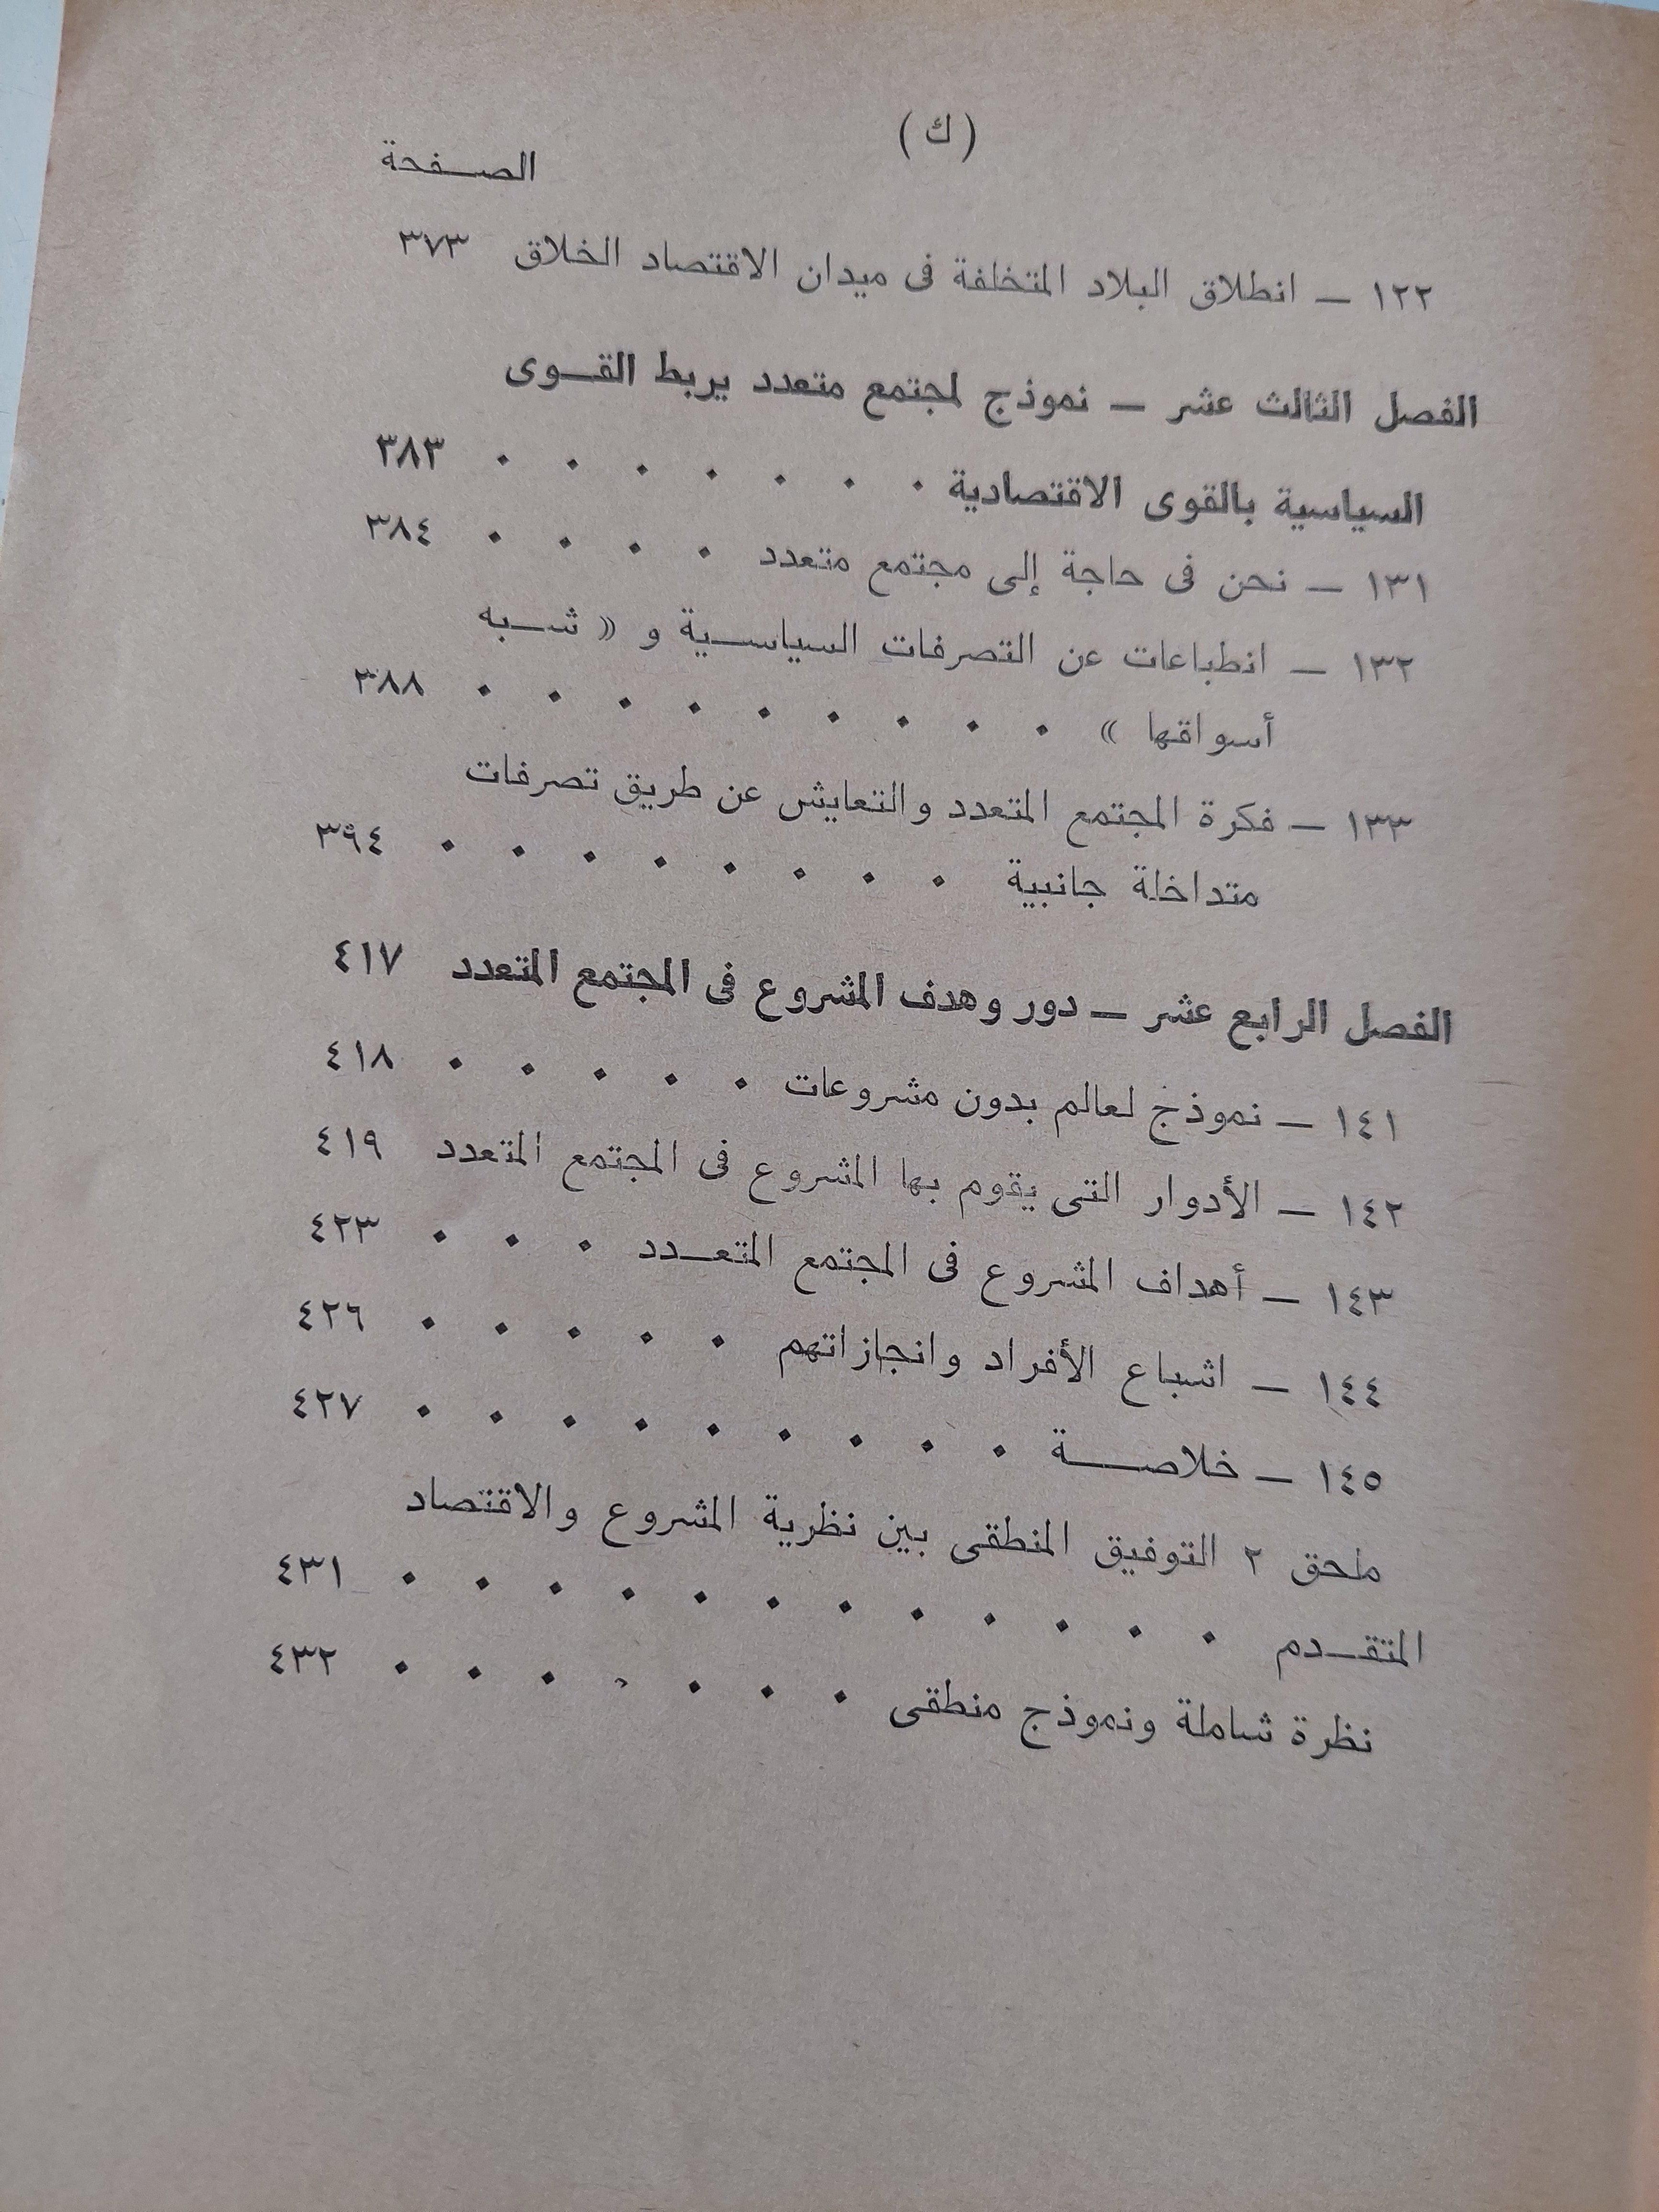 ( ك )
الصفحة
١٢٢ — انطلاق البلاد المتخلفة فى ميدان الاقتصاد الخلاق ٣٧٣
الفصل الثالث عشر — نموذج لمجتمع متعدد يربط القوى
السياسية بالقوى الاقتصادية . . . . . . . ٣٨٣
١٣١ — نحن فى حاجة إلى مجتمع متعدد . . . . ٣٨٤
١٣٢ — انطباعات عن التصرفات السياسية و « شبه
أسواقها » . . . . . . . . . ٣٨٨
١٣٣ — فكرة المجتمع المتعدد والتعايش عن طريق تصرفات
متداخلة جانبية . . . . . . . . ٣٩٤
الفصل الرابع عشر — دور وهدف المشروع فى المجتمع المتعدد ٤١٧
١٤١ — نموذج لعالم بدون مشروعات . . . . . ٤١٨
١٤٢ — الأدوار التى يقوم بها المشروع فى المجتمع المتعدد ٤١٩
١٤٣ — أهداف المشروع فى المجتمع المتعدد . . . ٤٢٣
١٤٤ — اشباع الأفراد وانجازاتهم . . . . . ٤٢٦
١٤٥ — خلاصة . . . . . . . . . ٤٢٧
ملحق ٢ التوفيق المنطقى بين نظرية المشروع والاقتصاد
المتقدم . . . . . . . . . . . . ٤٣١
نظرة شاملة ونموذج منطقى . . . . . . . ٤٣٢